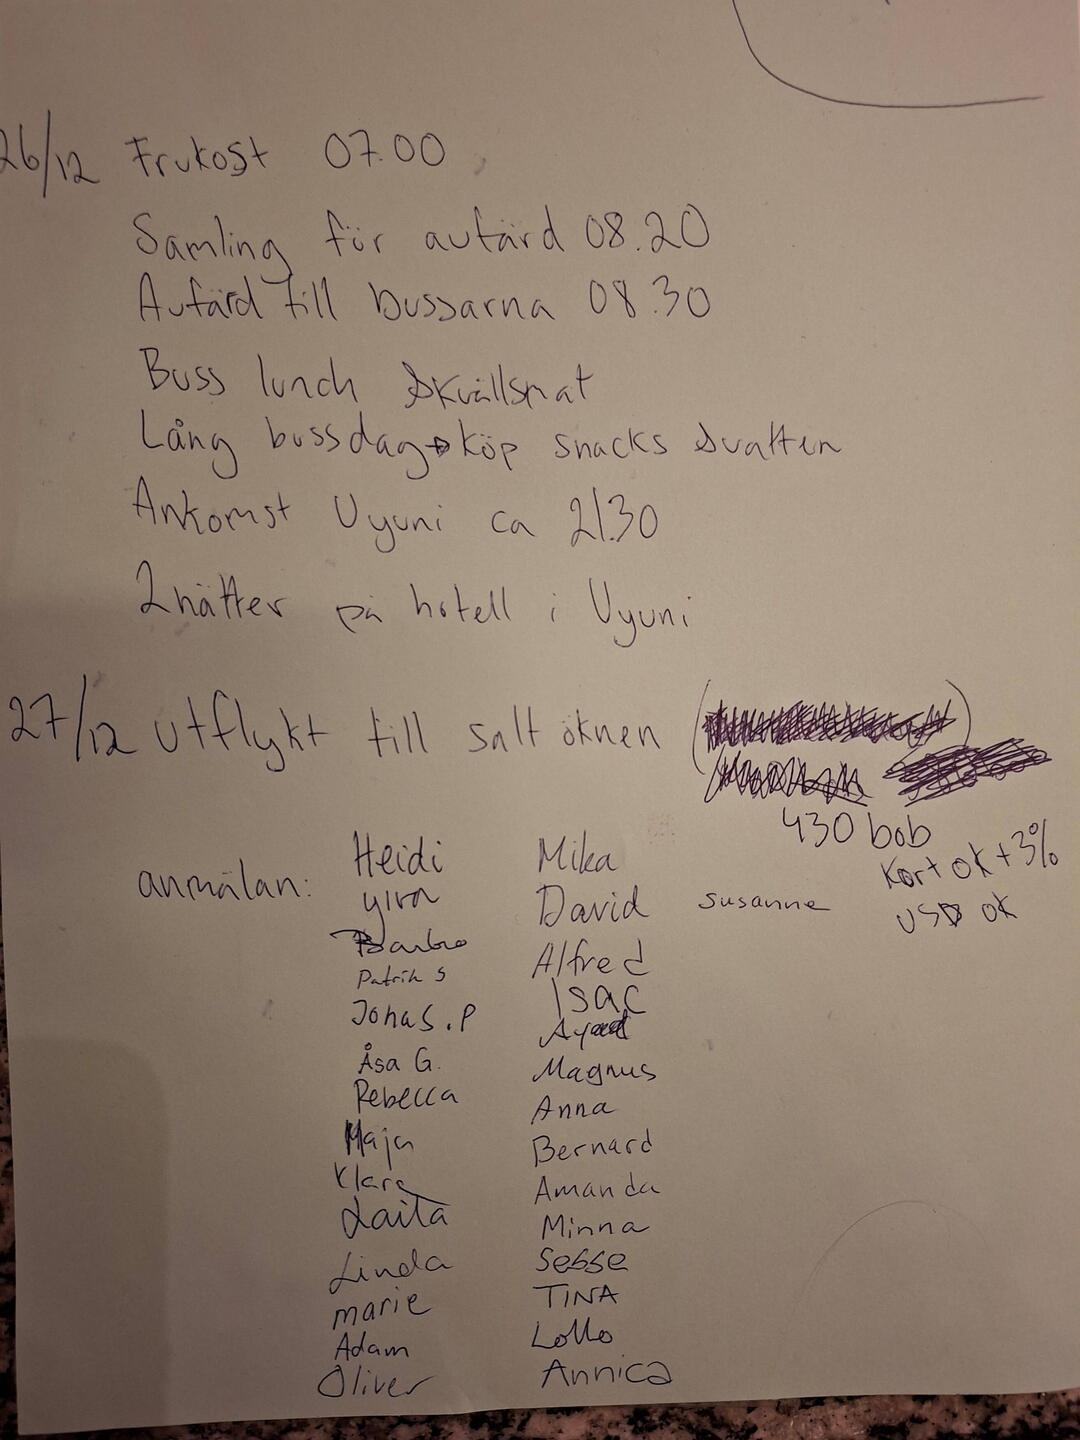 26/12 Frukost 07.00
Samling för avfärd 08.20
Avfärd till bussarna 08.30
Buss lunch & kvällsmat
Lång bussdag → köp snacks & vatten
Ankomst Uyuni ca 21.30
2 nätter på hotell i Uyuni
27/12 utflykt till salt öknen
430 bob
Kort ok + 3%
USD ok
anmälan:
Heidi
yira
Barbro
Patrik S
Jonas.P
Åsa G.
Rebecca
Maja
Klara
Laila
Linda
marie
Adam
Oliver
Mika
David
Alfred
Isac
Magnus
Anna
Bernard
Amanda
Minna
Sebse
TINA
Lollo
Annica
Susanne